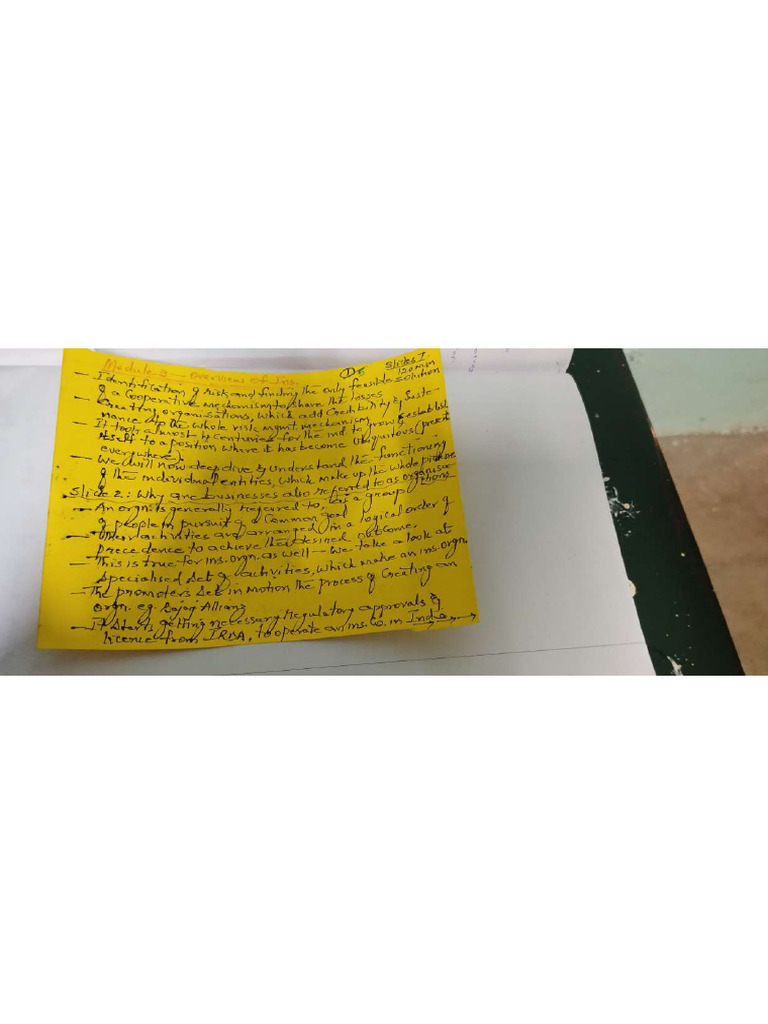 Module-3 — Overview of Ins. ① Slides 1
120 min
— Identification of risk and finding the only feasible solution
of a Cooperative mechanism to share the losses
— Creating organisations, which add Credibility & Suste-
nance to the whole risk mgmt. mechanism
— It took almost 4 centuries for the ind. to grow & establish
itself to a position where it has become ubiquitous (present
everywhere).
— We will now deep dive & understand the functioning
of the individual entities, which make up the whole picture
Slide 2: Why are businesses also referred to as organisations
— An orgn. is generally referred to, as a group
of people in pursuit of a Common goal
— Their activities are arranged in a logical order of
precedence to achieve the desired outcome.
— This is true for ins. orgn. as well — We take a look at
specialised set of activities, which make an ins. orgn.
— The promoters set in motion the process of Creating an
orgn. eg. Bajaj Allianz
— It starts getting necessary regulatory approvals &
licence from IRDA, to operate an ins. Co. in India